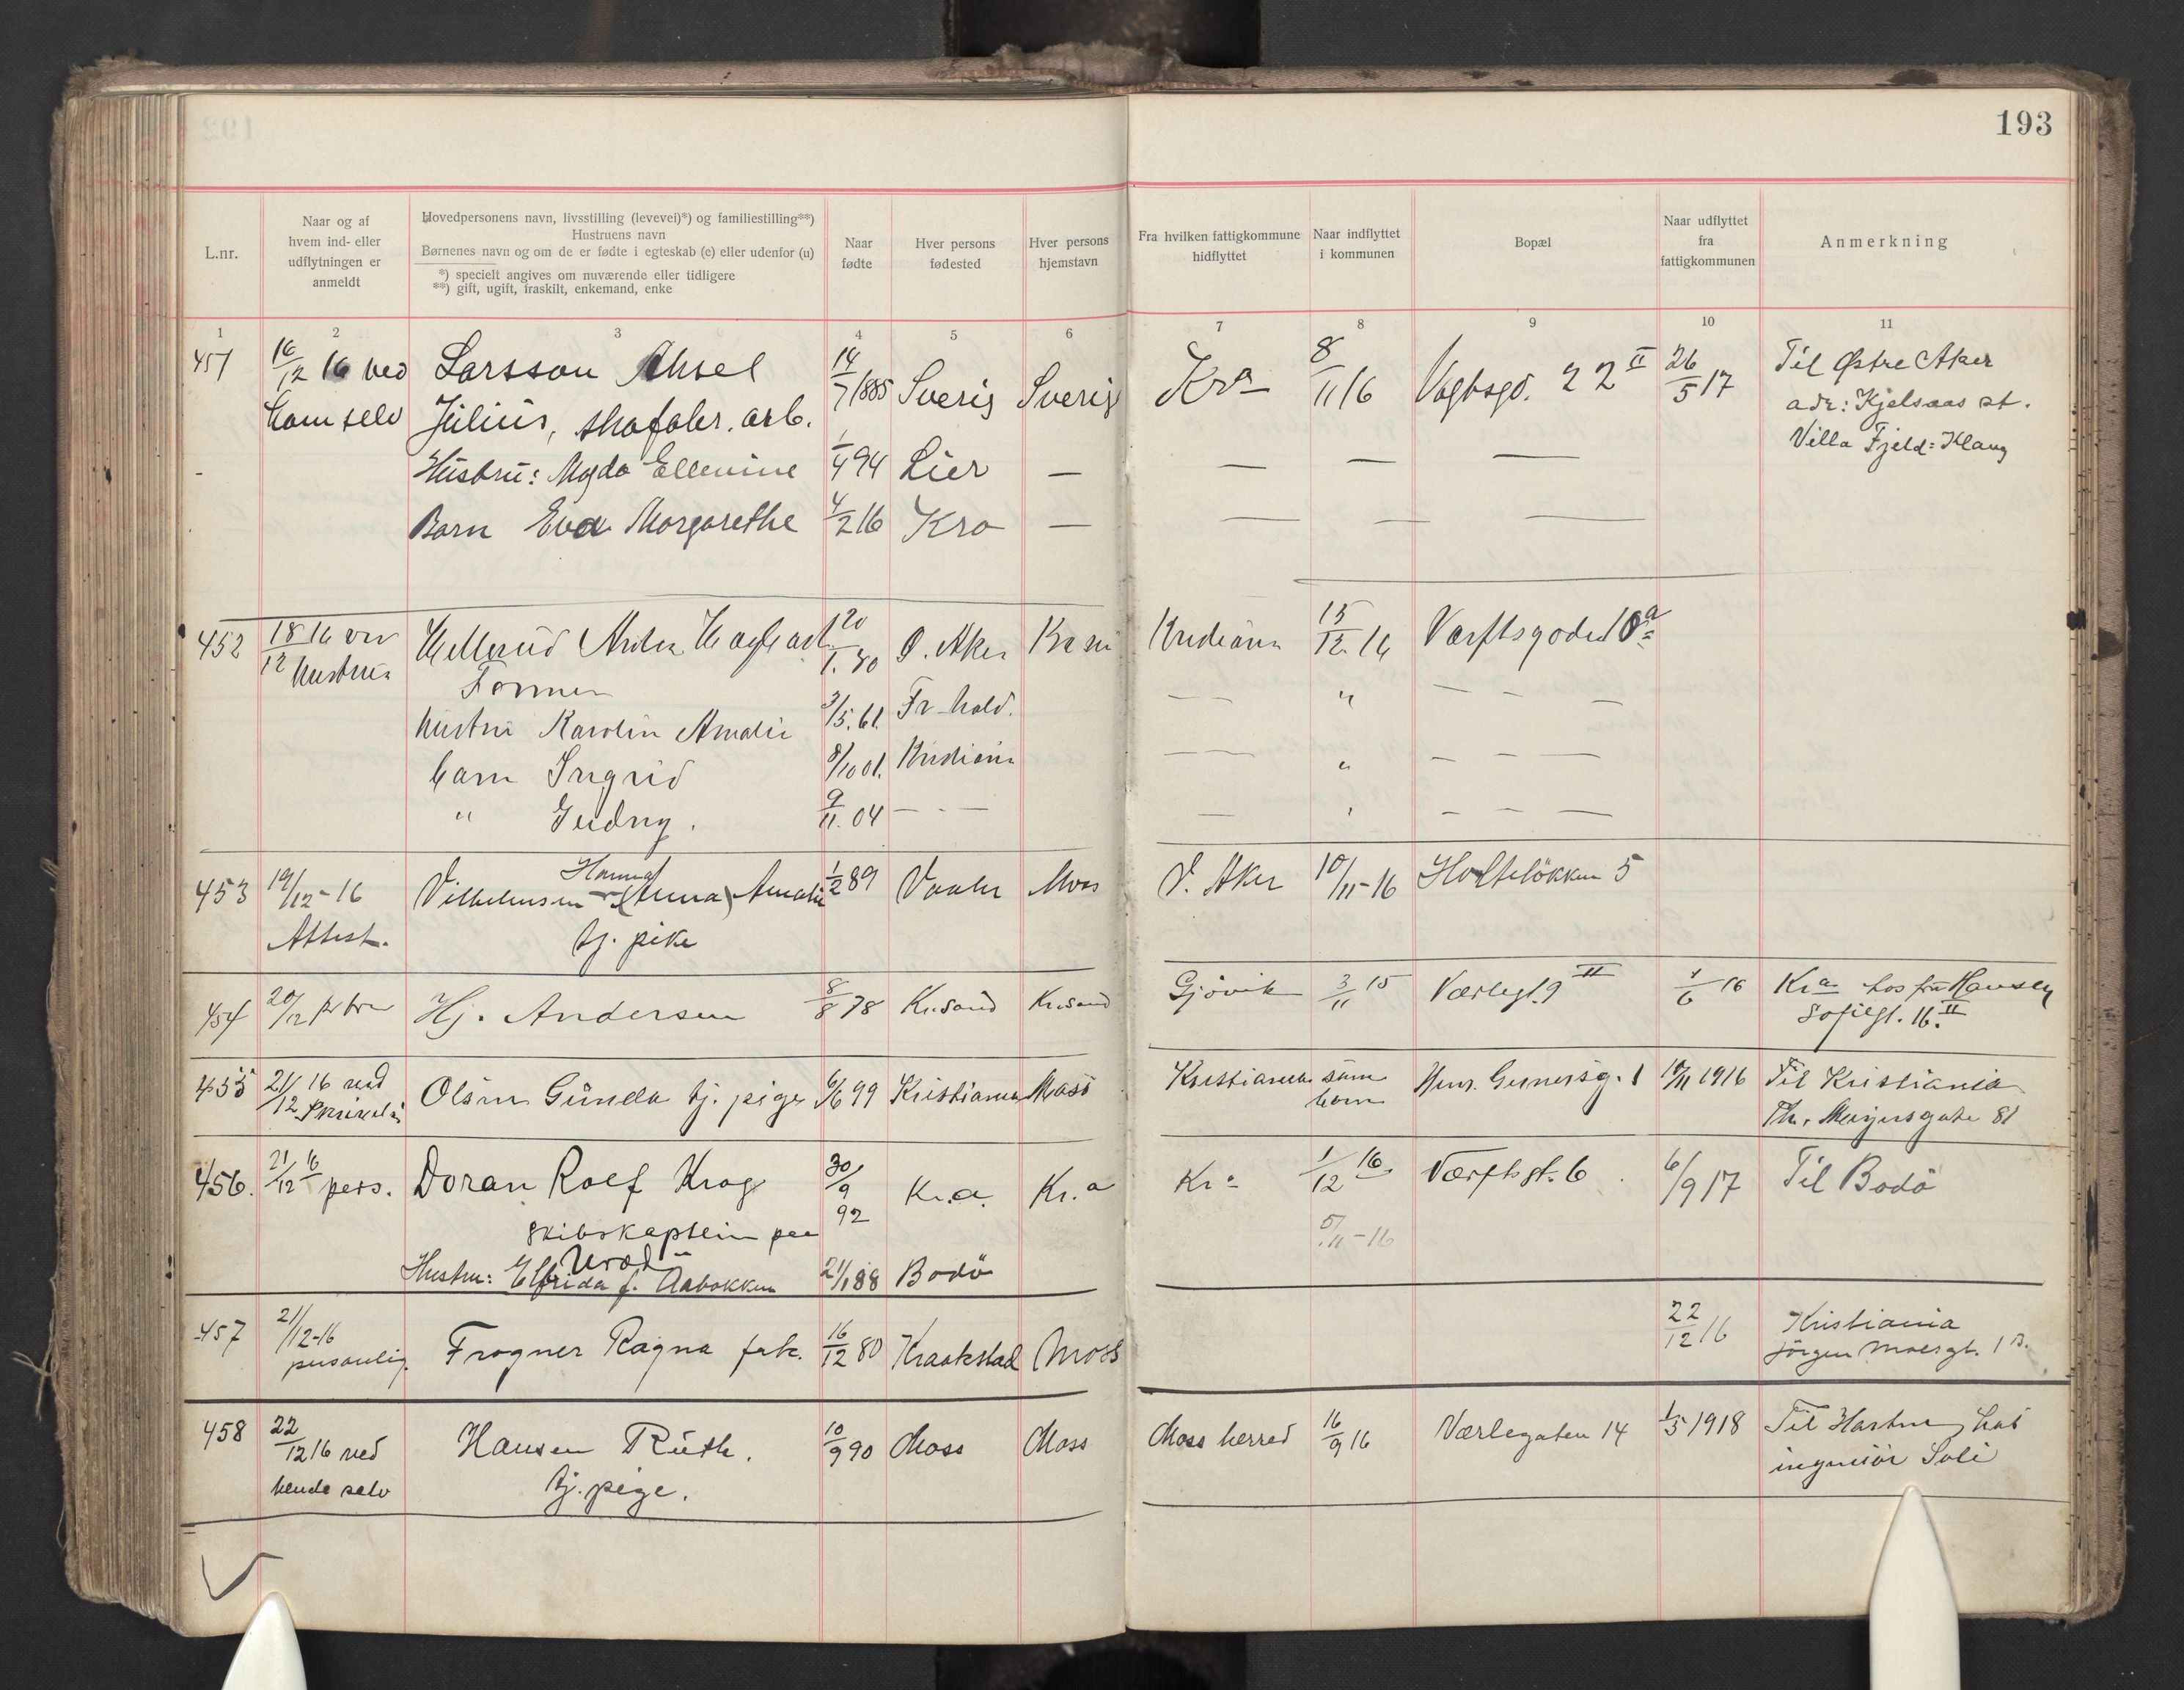 193
L.nr.
Naar og af
hvem ind- eller
udflytningen er
anmeldt
Hovedpersonens navn, livsstilling (levevei)*) og familiestilling**)
Hustruens navn
Børnenes navn og om de er fødte i egteskab (e) eller udenfor (u)
*) specielt angives om nuværende eller tidligere
**) gift, ugift, fraskilt, enkemand, enke
Naar
fødte
Hver persons
fødested
Hver persons
hjemstavn
Fra hvilken fattigkommune
hidflyttet
Naar indflyttet
i kommunen
Bopæl
Naar udflyttet
fra
fattigkommunen
Anmerkning
1 2 3 4 5 6 7 8 9 10 11
451 16/12 16 ved Larsson Aksel 14/7 1885 Sverig Sverig Kra 8/11 16 Vogtsgd. 22 II 26/5 17 Til Østre Aker
ham selv Julius, skofabr. arb. adr: Kjelsaas st.
Villa Fjeld-Klang
Hustru: Magda Ellenine 1/4 94 Lier — — — —
Barn Eva Margarethe 4/2 16 Kra — — — —
452 18/12 16 ved Hellerud Anton Hagbart 20/1. 80 Ø. Aker Kristiania 15/12. 16 Værftsgaden 10a
Hustruen Former
Hustru Karolin Amalie 3/5. 61. Fr.hald. — " — - —
barn Ingrid 8/10 01. Kristiania — " — - —
" Gudny. 9/11. 04 — - — — " — - —
Hanna
453 19/12-16 Vilhelmsen (Anna) Amalie 1/2 89 Vaaler Moss V. Aker 10/11-16 Holteløkken 5
Attest. tj. pike
454 20/12 pr brev Hj. Andersen 8/8 78 Kr.sand Kr.sand Gjövik 3/11 15 Værlegt. 9 II 1/6 16 Kra hos fru Hansen
Sofiegt. 16. II
455 21/12 16 ved Olsen Gunda tj. pige 6/6 99 Kristiania Moss Kristiania som Henr. Gernersg. 1 10/11 1916 Til Kristiania
barn Th. Meyersgate 81
456. 21/12 16 pers. Doran Rolf Krog 30/9 92 Kr.a. Kr.a Kra 1/12 16. Værftsgt. 6 6/9 17 Til Bodö
skibskaptein paa 5/11-16
Urædd
Hustru: Elfrida f. Aabakken 21/1 88 Bodö
457 21/12-16 Frogner Ragna frk. 16/12 80 Kraakstad Moss 22/12 16 Kristiania
personlig. Jörgen Moesgt. 1 B.
458 22/12 16 ved Hansen Ruth. 10/9 90 Moss Moss Moss herred 16/9 16 Værlegaten 14 1/5 1918 Til Horten hos
hende selv tj. pige. ingeniör Soli